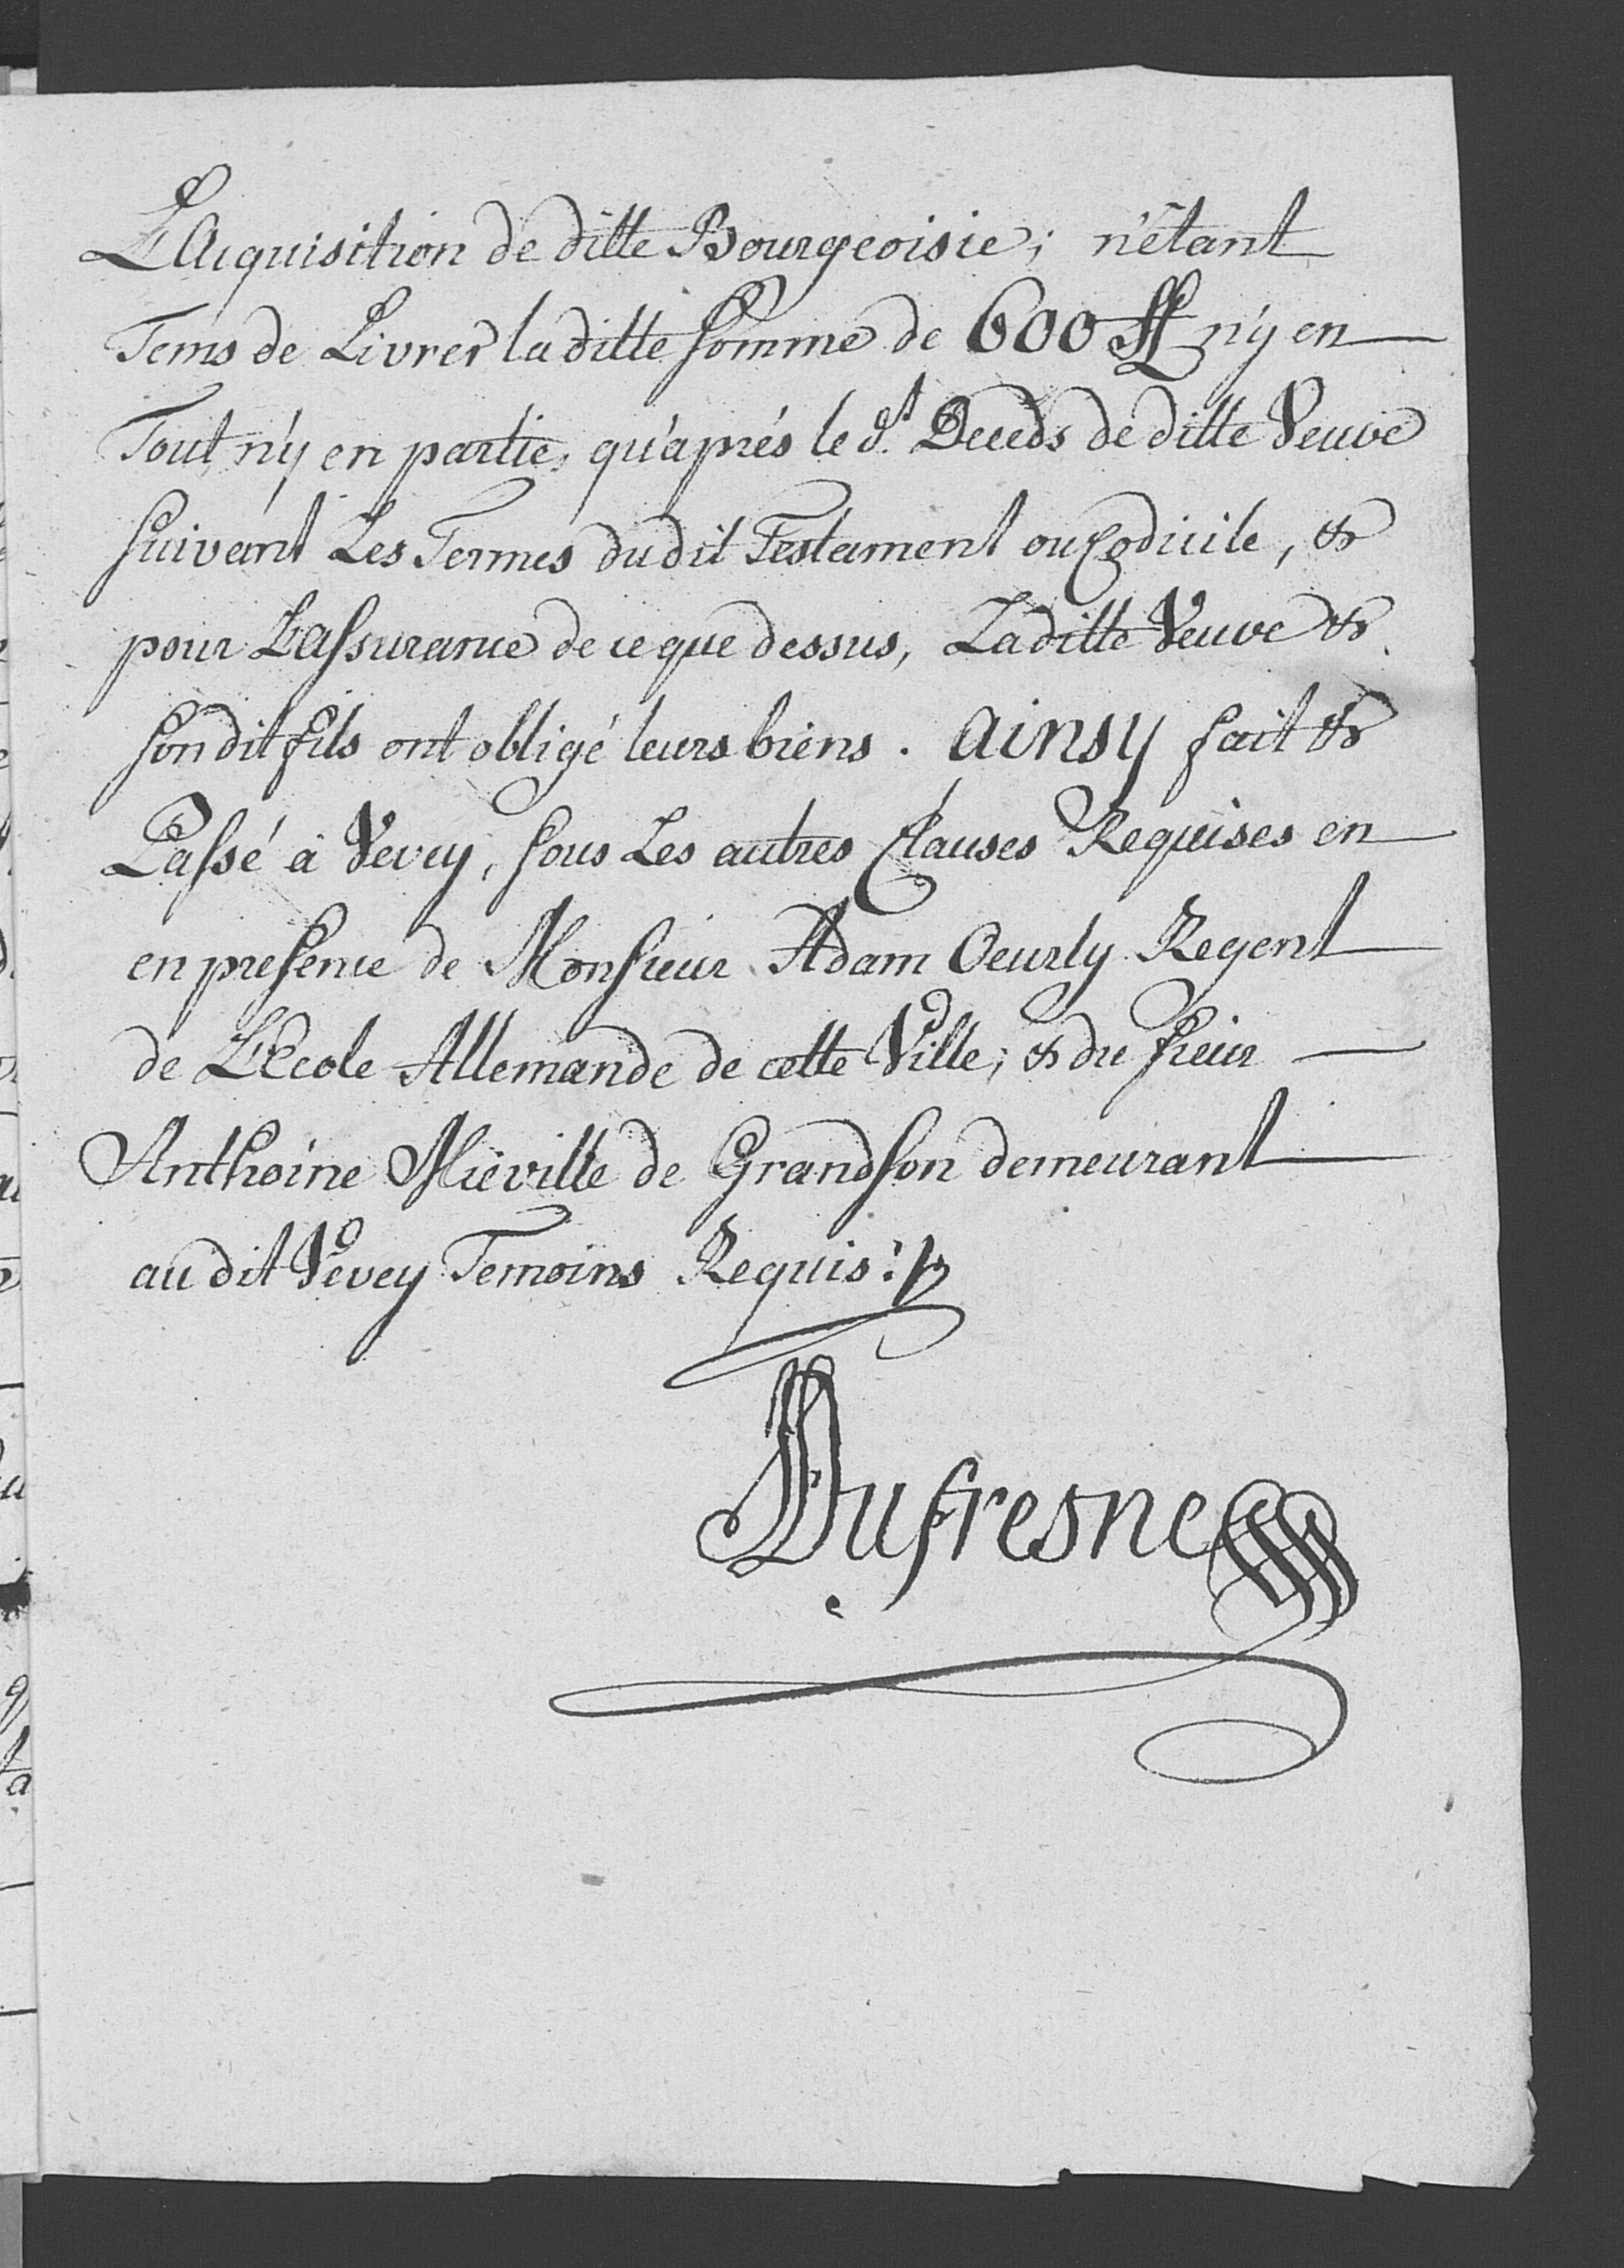 L'Acquisition de ditte Bourgeoisie; n'étant
Tems de Livrer la ditte somme de 600 ff n'y en
Tout, n'y en partie, qu'aprés le d.t Deceds de ditte Veuve
suivant Les Termes du dit Testament ou Codicile, &
pour L'assurance de ce que dessus, La ditte Veuve &
son dit fils ont obligé leurs biens. Ainsy fait &
Passé à Vevey, sous Les autres Clauses Requises en
en presence de Monsieur Adam Oeurly Regent
de L'Ecole Allemande de cette Ville; & du sieur
Anthoine Miéville de Grandson demeurant
au dit Vevey Temoins Requis:
Dufresne